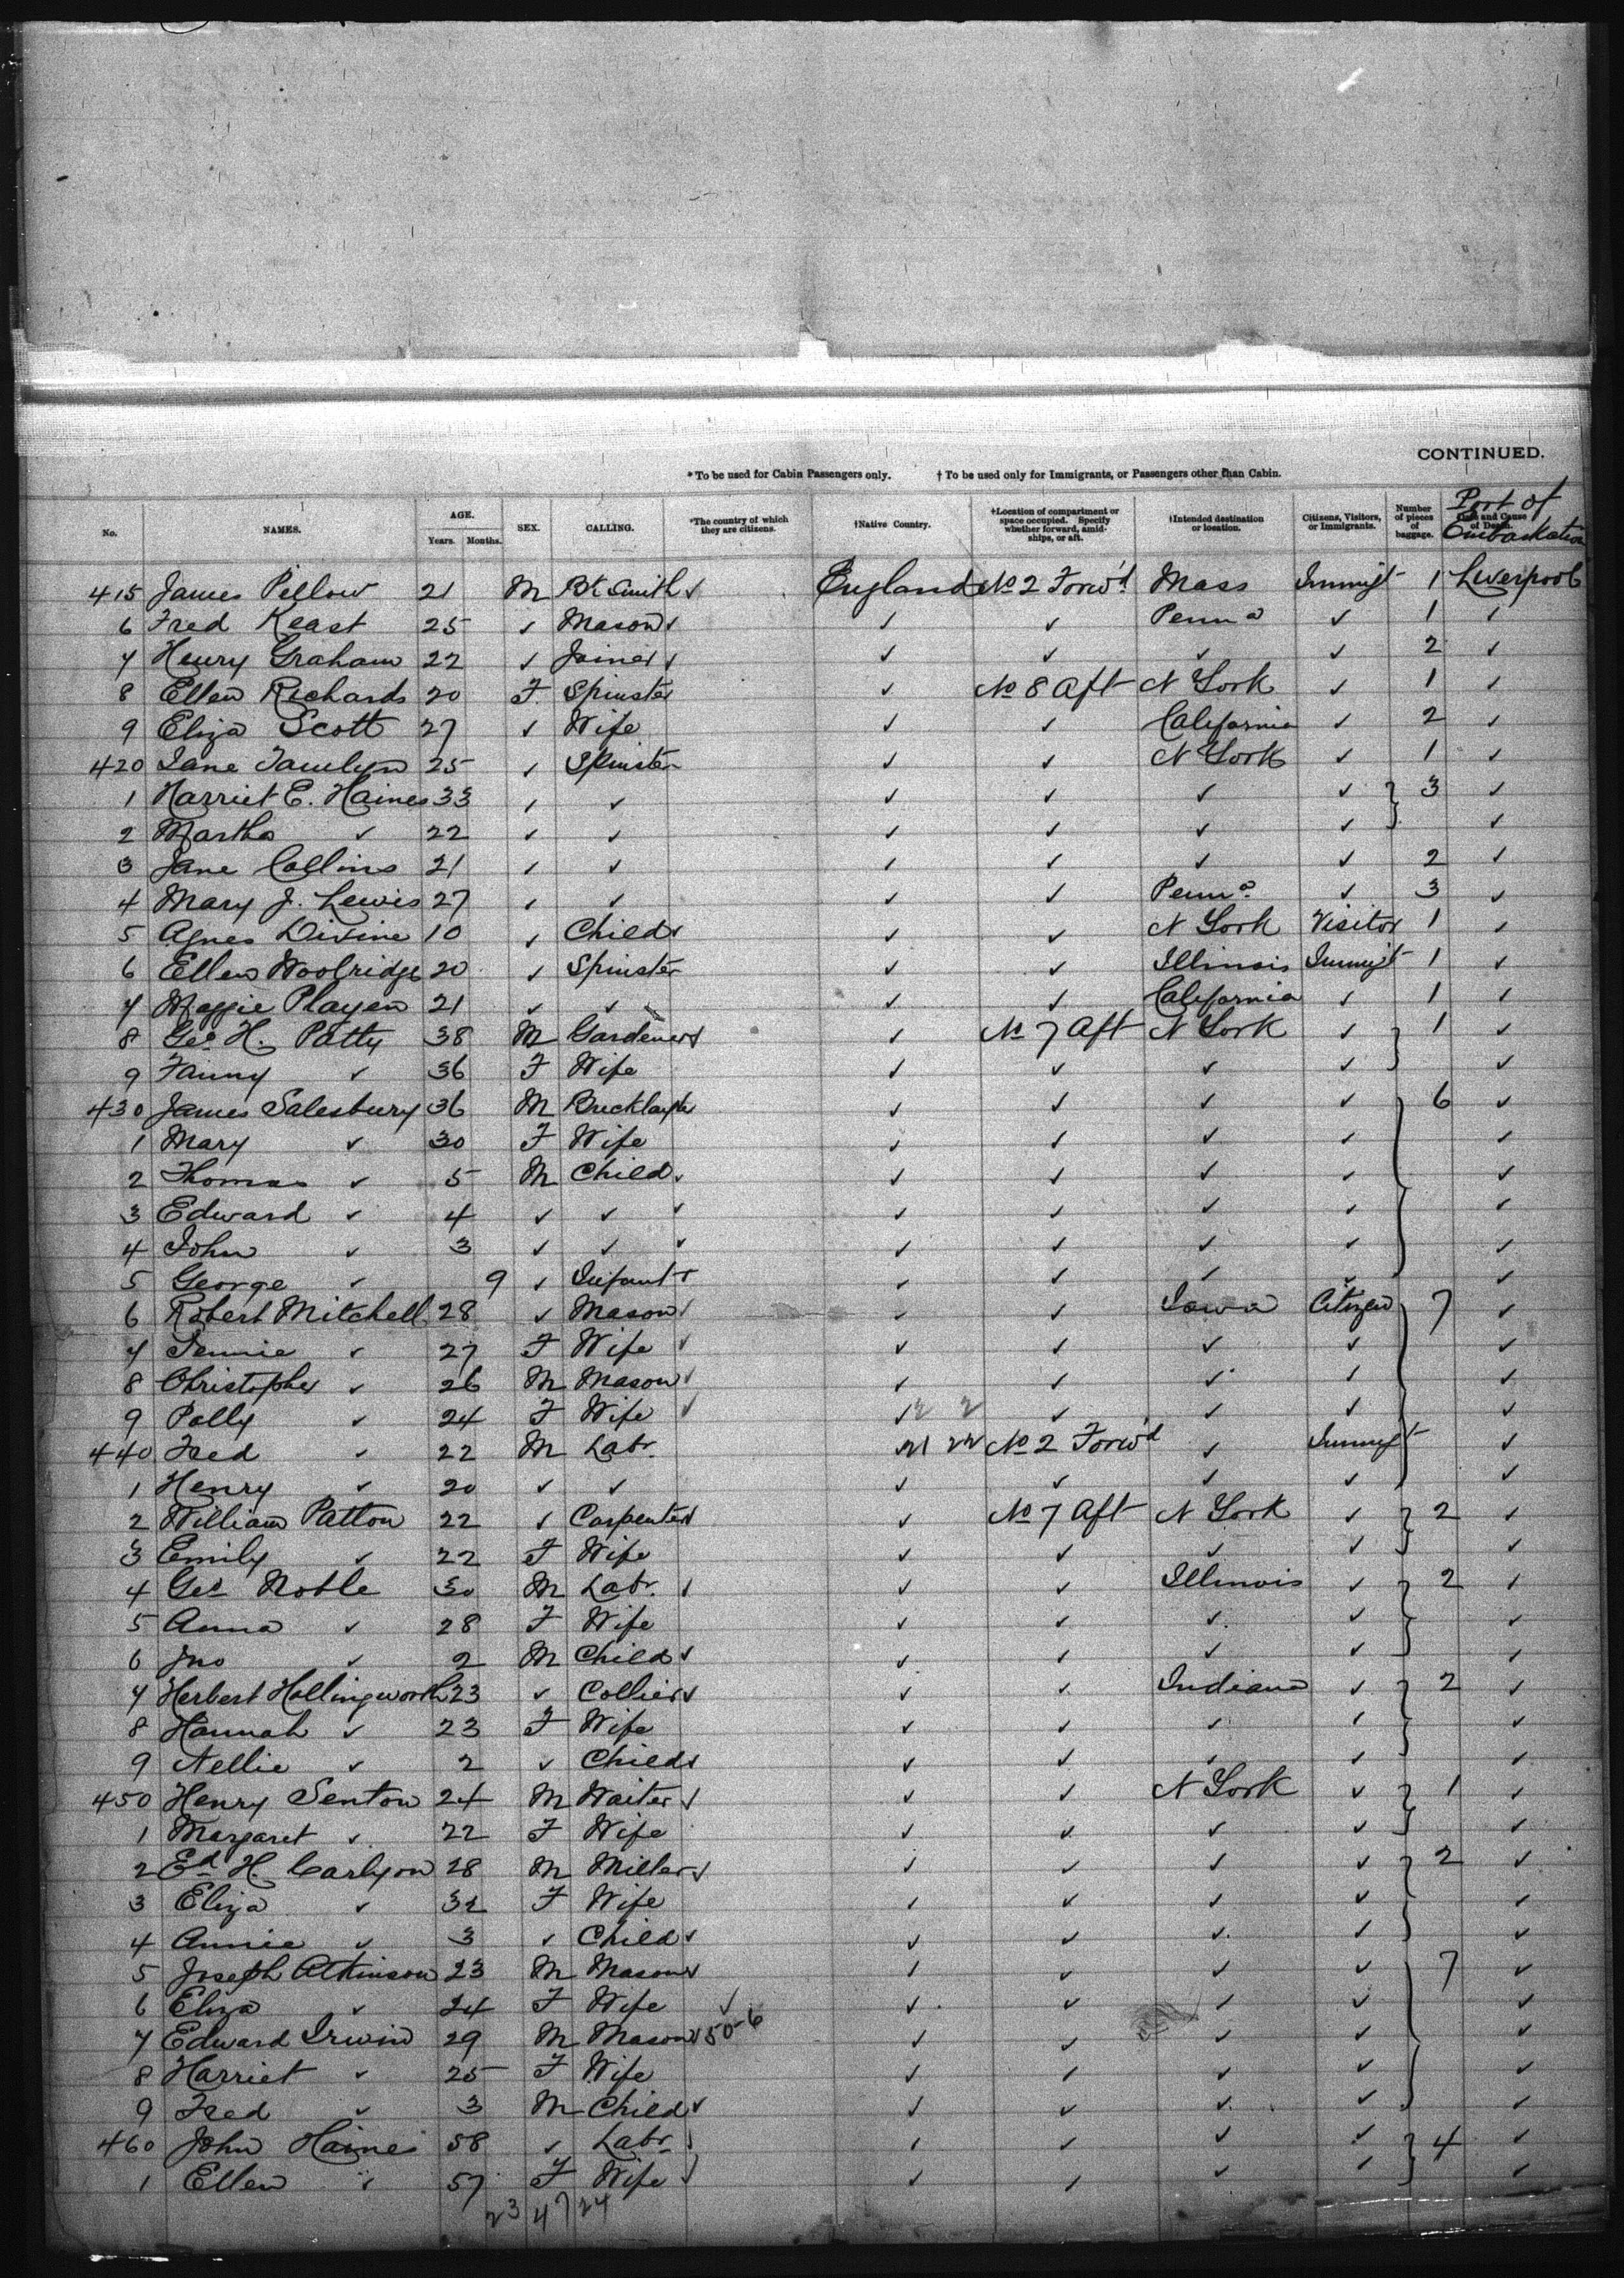 CONTINUED.
* To be used for Cabin Passengers only. † To be used only for Immigrants, or Passengers other than Cabin.
No. NAMES. AGE. Years. Months. SEX. CALLING. *The country of which they are citizens. †Native Country. †Location of compartment or space occupied. Specify whether forward, amidships, or aft. †Intended destination or location. Citizens, Visitors, or Immigrants. Number of pieces of baggage. Date and Cause of Death. Port of Embarkation
415 James Pellow 21 M Bk Smith ✓ England No 2 Forw'd Mass Immigt 1 Liverpool
6 Fred Keast 25 ✓ Mason ✓ ✓ ✓ Penna ✓ 1 ✓
7 Henry Graham 22 ✓ Joiner ✓ ✓ ✓ ✓ ✓ 2 ✓
8 Ellen Richards 20 F Spinster ✓ No 8 Aft N York ✓ 1 ✓
9 Eliza Scott 27 ✓ Wife ✓ ✓ California ✓ 2 ✓
420 Jane 25 ✓ Spinster ✓ ✓ N York ✓ 1 ✓
1 Harriet E. Haines 33 ✓ ✓ ✓ ✓ ✓ ✓ } 3 ✓
2 Martha ✓ 22 ✓ ✓ ✓ ✓ ✓ ✓ ✓
3 Jane Collins 21 ✓ ✓ ✓ ✓ ✓ ✓ 2 ✓
4 Mary J. Lewis 27 ✓ ✓ ✓ ✓ Penna. ✓ 3 ✓
5 Agnes Divine 10 ✓ Child ✓ ✓ ✓ N York Visitor 1 ✓
6 Ellen Woolridge 20 ✓ Spinster ✓ ✓ Illinois Immigt 1 ✓
7 Maggie Playen 21 ✓ ✓ ✓ ✓ California ✓ 1 ✓
8 Geo H. Patty 38 M Gardener ✓ ✓ No 7 Aft N York ✓ } 1 ✓
9 Fanny ✓ 36 F Wife ✓ ✓ ✓ ✓ ✓
430 James Salesbury 36 M Bricklayer ✓ ✓ ✓ ✓ } 6 ✓
1 Mary ✓ 30 F Wife ✓ ✓ ✓ ✓ ✓
2 Thomas ✓ 5 M Child ✓ ✓ ✓ ✓ ✓ ✓
3 Edward ✓ 4 ✓ ✓ ✓ ✓ ✓ ✓ ✓ ✓
4 John ✓ 3 ✓ ✓ ✓ ✓ ✓ ✓ ✓ ✓
5 George ✓ 9 ✓ Infant ✓ ✓ ✓ ✓ ✓ ✓
6 Robert Mitchell 28 ✓ Mason ✓ ✓ ✓ Iowa Citizen } 7 ✓
7 Jennie ✓ 27 F Wife ✓ ✓ ✓ ✓ ✓ ✓
8 Christopher ✓ 26 M Mason ✓ ✓ ✓ ✓ ✓ ✓
9 Polly ✓ 24 F Wife ✓ ✓ 2 2 ✓ ✓ ✓ ✓
440 Fred ✓ 22 M Labr. ✓ No 2 Forw'd ✓ Immigt ✓
1 Henry ✓ 20 ✓ ✓ ✓ ✓ ✓ ✓ ✓
2 William Patton 22 ✓ Carpenter ✓ ✓ No 7 Aft N York ✓ } 2 ✓
3 Emily ✓ 22 F Wife ✓ ✓ ✓ ✓ ✓
4 Geo Noble 30 M Labr. ✓ ✓ ✓ Illinois ✓ } 2 ✓
5 Anna ✓ 28 F Wife ✓ ✓ ✓ ✓ ✓
6 Jno ✓ 2 M Child ✓ ✓ ✓ ✓ ✓ ✓
7 Herbert Hollingworth 23 ✓ Collier ✓ ✓ ✓ Indiana ✓ } 2 ✓
8 Hannah ✓ 23 F Wife ✓ ✓ ✓ ✓ ✓
9 Nellie ✓ 2 ✓ Child ✓ ✓ ✓ ✓ ✓ ✓
450 Henry Senton 24 M Waiter ✓ ✓ ✓ N York ✓ } 1 ✓
1 Margaret ✓ 22 F Wife ✓ ✓ ✓ ✓ ✓
2 Ed H. Carlyon 28 M Miller ✓ ✓ ✓ ✓ ✓ } 2 ✓
3 Eliza ✓ 32 F Wife ✓ ✓ ✓ ✓ ✓
4 Annie ✓ 3 ✓ Child ✓ ✓ ✓ ✓ ✓ ✓
5 Joseph Atkinson 23 M Mason ✓ ✓ ✓ ✓ ✓ } 7 ✓
6 Eliza ✓ 24 F Wife ✓ ✓ ✓ ✓ ✓ ✓
7 Edward Irwin 29 M Mason ✓ 50-6 ✓ ✓ ✓ ✓ ✓
8 Harriet ✓ 25 F Wife ✓ ✓ ✓ ✓ ✓
9 Fred ✓ 3 M Child ✓ ✓ ✓ ✓ ✓ ✓
460 John Haines 58 ✓ Labr ✓ ✓ ✓ ✓ ✓ } 4 ✓
1 Ellen ✓ 57 F Wife ✓ ✓ ✓ ✓ ✓ ✓
23 47 24